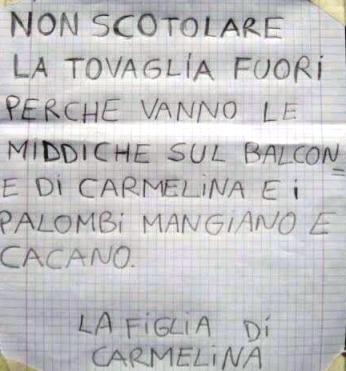 NON SCOTOLARE
LA TOVAGLIA FUORI
PERCHE VANNO LE
MIDDICHE SUL BALCON
E DI CARMELINA E i
PALOMBI MANGIANO E
CACANO.
LA FIGLIA DI
CARMELINA